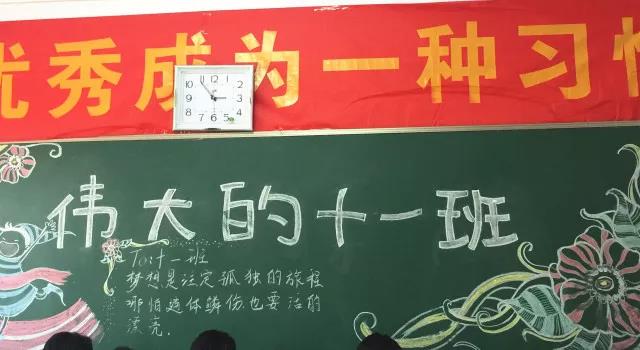 优秀成为一种习惯
10 11 12 1 2 3 4 5 6 7 8 9
伟大的十一班
To:十一班
梦想是注定孤独的旅程
哪怕遍体鳞伤也要活的
漂亮.